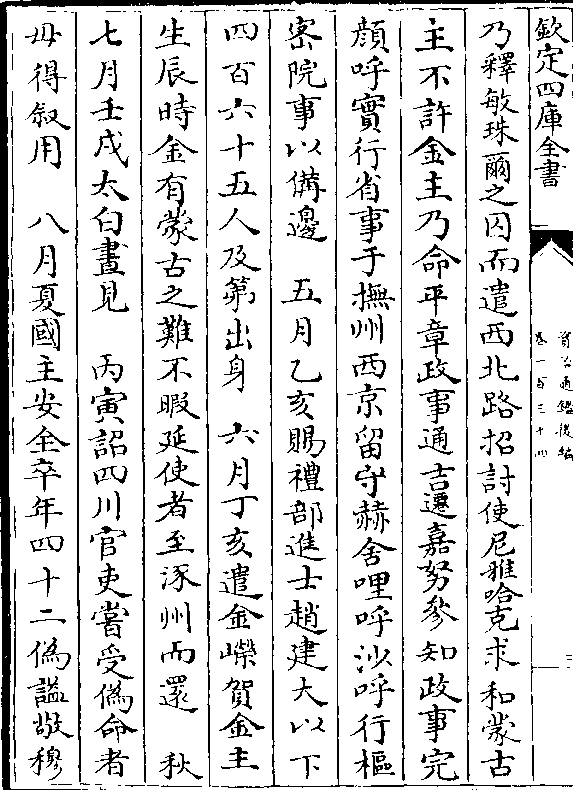 欽定四庫全書
資治通鑑後編
卷一百三十四
乃釋敏珠爾之囚而遣西北路招討使尼雅哈克求和蒙古
主不許金主乃命平章政事通吉遷嘉努參知政事完
顔呼實行省事于撫州西京留守赫舍哩呼沙呼行樞
密院事以備邊　五月乙亥賜禮部進士趙建大以下
四百六十五人及第出身　六月丁亥遣金嶸賀金主
生辰時金有蒙古之難不暇延使者至涿州而還　秋
七月壬戌太白晝見　丙寅詔四川官吏嘗受僞命者
毋得叙用　八月夏國主安全卒年四十二僞諡敬穆